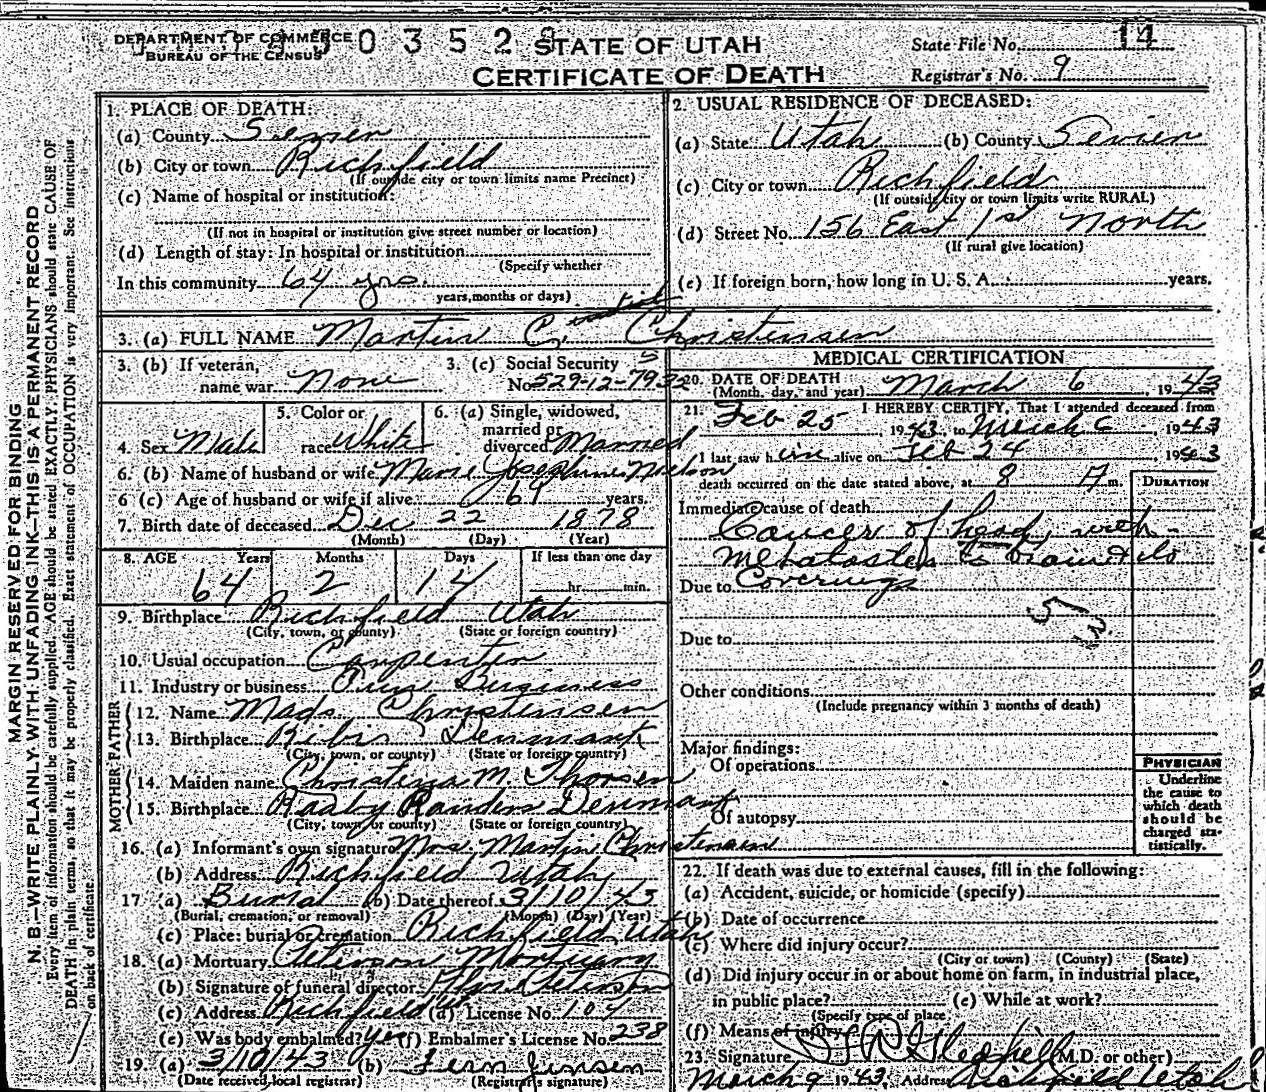 DEPARTMENT OF COMMERCE
BUREAU OF THE CENSUS
0 3 5 2
STATE OF UTAH
CERTIFICATE OF DEATH
State File No. 14
Registrar's No. 9
MARGIN RESERVED FOR BINDING
N. B.—WRITE PLAINLY, WITH UNFADING INK—THIS IS A PERMANENT RECORD
Every item of information should be carefully supplied. AGE should be stated EXACTLY. PHYSICIANS should state CAUSE OF
DEATH in plain terms, so that it may be properly classified. Exact statement of OCCUPATION is very important. See instructions
on back of certificate.
1. PLACE OF DEATH:
(a) County Sevier
(b) City or town Richfield
(If outside city or town limits name Precinct)
(c) Name of hospital or institution:
(If not in hospital or institution give street number or location)
(d) Length of stay: In hospital or institution
(Specify whether
In this community 64 yrs.
years, months or days)
2. USUAL RESIDENCE OF DECEASED:
(a) State Utah (b) County Sevier
(c) City or town Richfield
(If outside city or town limits write RURAL)
(d) Street No. 156 East 1st North
(If rural give location)
(e) If foreign born, how long in U. S. A.: years.
3. (a) FULL NAME Martin C. Christensen
3. (b) If veteran, name war None
3. (c) Social Security No. 529-12-79
4. Sex Male
5. Color or race White
6. (a) Single, widowed, married or divorced Married
6. (b) Name of husband or wife Marie Josephine Nielson
6 (c) Age of husband or wife if alive 64 years.
7. Birth date of deceased Dec 22 1878
(Month) (Day) (Year)
8. AGE Years Months Days If less than one day
64 2 14 hr. min.
9. Birthplace Richfield Utah
(City, town, or county) (State or foreign country)
10. Usual occupation Carpenter
11. Industry or business Business
FATHER
12. Name Mads Christensen
13. Birthplace Denmark
(City, town, or county) (State or foreign country)
MOTHER
14. Maiden name Christina M. Thorsen
15. Birthplace Randers Denmark
(City, town, or county) (State or foreign country)
16. (a) Informant's own signature Mrs. Martin Christensen
(b) Address Richfield Utah
17 (a) Burial (b) Date thereof 3/10/43
(Burial, cremation, or removal) (Month) (Day) (Year)
(c) Place: burial or cremation Richfield, Utah
18. (a) Mortuary Peterson Mortuary
(b) Signature of funeral director Peterson
(c) Address Richfield (d) License No. 107
(e) Was body embalmed? Yes (f) Embalmer's License No. 238
19. (a) 3/10/43 (b) Fern Jensen
(Date received local registrar) (Registrar's signature)
MEDICAL CERTIFICATION
20. DATE OF DEATH March 6, 1943
(Month, day, and year)
21. I HEREBY CERTIFY, That I attended deceased from
Feb 25, 1943, to March 6, 1943
I last saw him alive on Feb 24 1943
death occurred on the date stated above, at 8 A m.
DURATION
Immediate cause of death
Cancer of head with
metastases to brain & its
Due to Coverings
Due to
Other conditions
(Include pregnancy within 3 months of death)
Major findings:
Of operations
Of autopsy
PHYSICIAN
Underline
the cause to
which death
should be
charged sta-
tistically.
22. If death was due to external causes, fill in the following:
(a) Accident, suicide, or homicide (specify)
(b) Date of occurrence
(c) Where did injury occur?
(City or town) (County) (State)
(d) Did injury occur in or about home on farm, in industrial place,
in public place? (e) While at work?
(Specify type of place
(f) Means of injury
23. Signature (M.D. or other)
March 9 1943, Address Richfield Utah